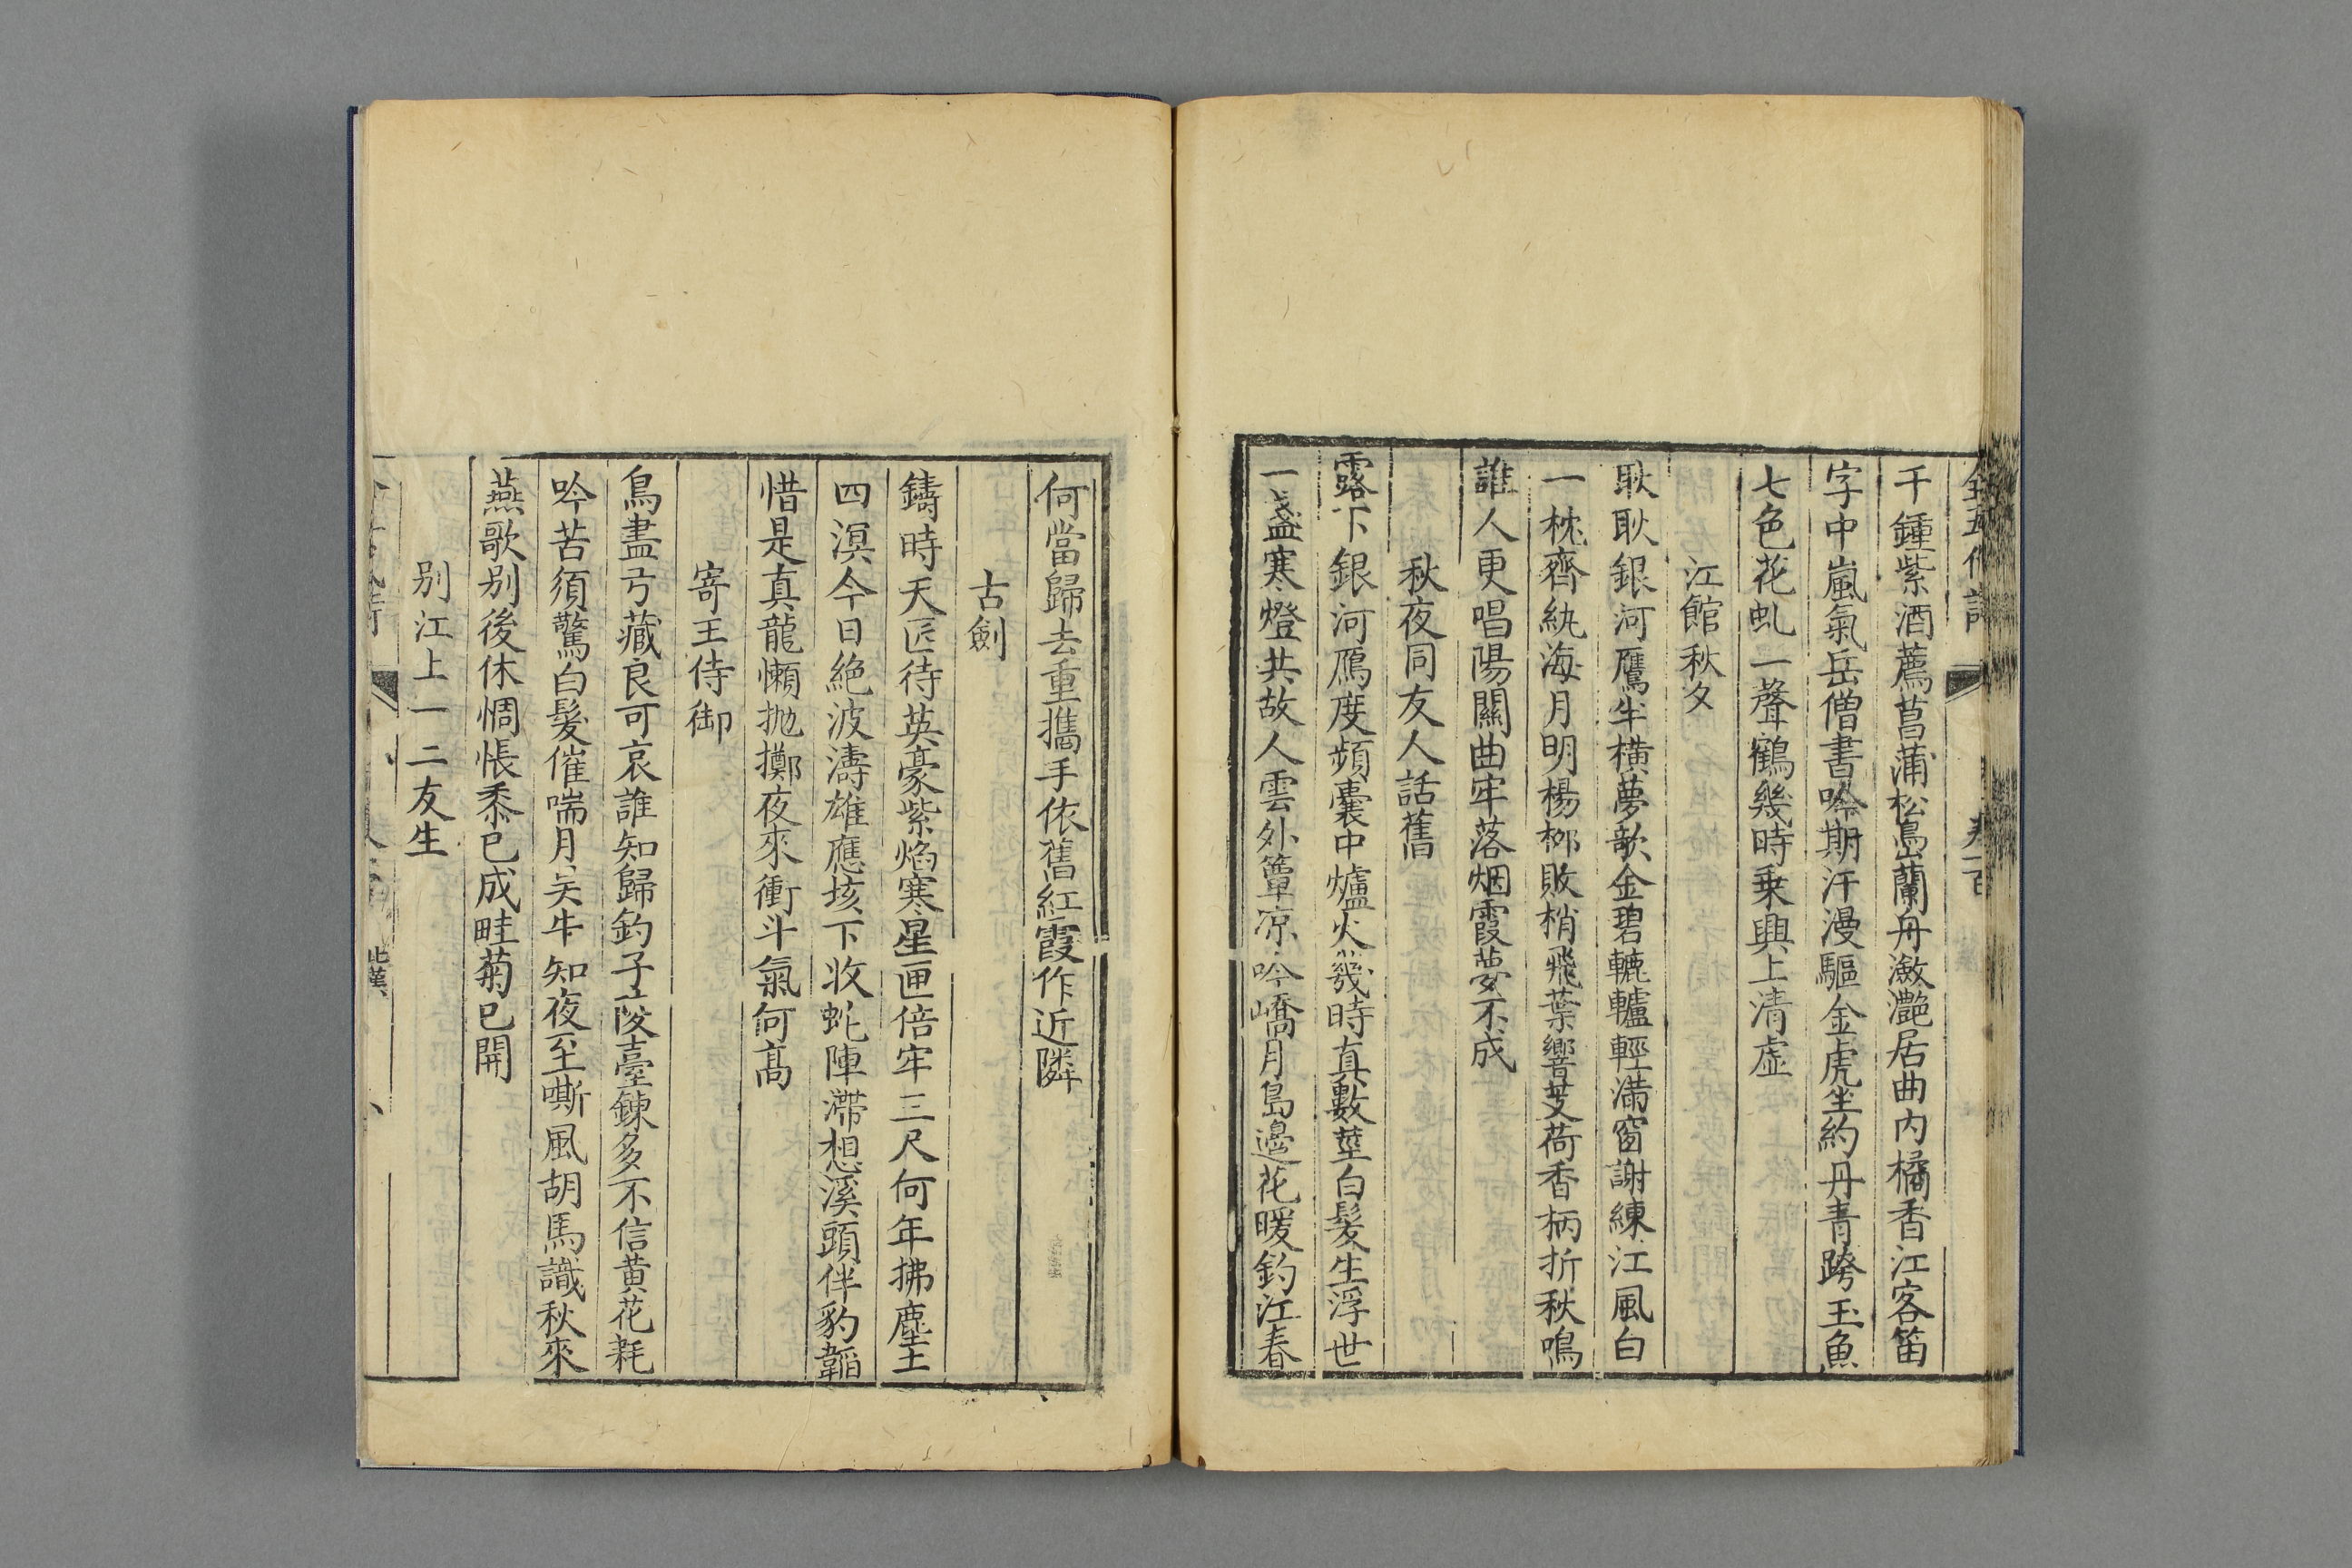 千鍾紫酒薦菖蒲松島蘭舟瀲灧居曲内橘香江客笛
字中嵐氣岳僧書吟期汗漫驅金虎坐約丹青跨玉魚
七色花虬一聲鶴幾時乗興上清虛
江館秋夕
耿耿銀河鴈半横夢欹金碧轆轤輕滿窗謝練江風白
一枕齊紈海月明楊栁敗梢飛葉響芰荷香柄折秋鳴
誰人更唱陽關曲牢落烟霞夢不成
秋夜同友人話舊
露下銀河鴈度頻囊中爐火幾時真數莖白髪生浮世
一盞寒燈共故人雲外簟凉吟嶠月島邊花暖釣江春
何當歸去重攜手依舊紅霞作近隣
古劍
鑄時天匠待英豪紫焰寒星匣倍牢三尺何年拂塵土
四溟今日絶波濤雄應垓下收蛇陣滯想溪頭伴豹韜
惜是真龍懶拋擲夜來衝斗氣何髙
寄王侍御
鳥盡弓藏良可哀誰知歸釣子陵臺鍊多不信黄花耗
吟苦須驚白髮催喘月吴牛知夜至嘶風胡馬識秋來
燕歌别後休惆悵黍已成畦菊已開
别江上一二友生